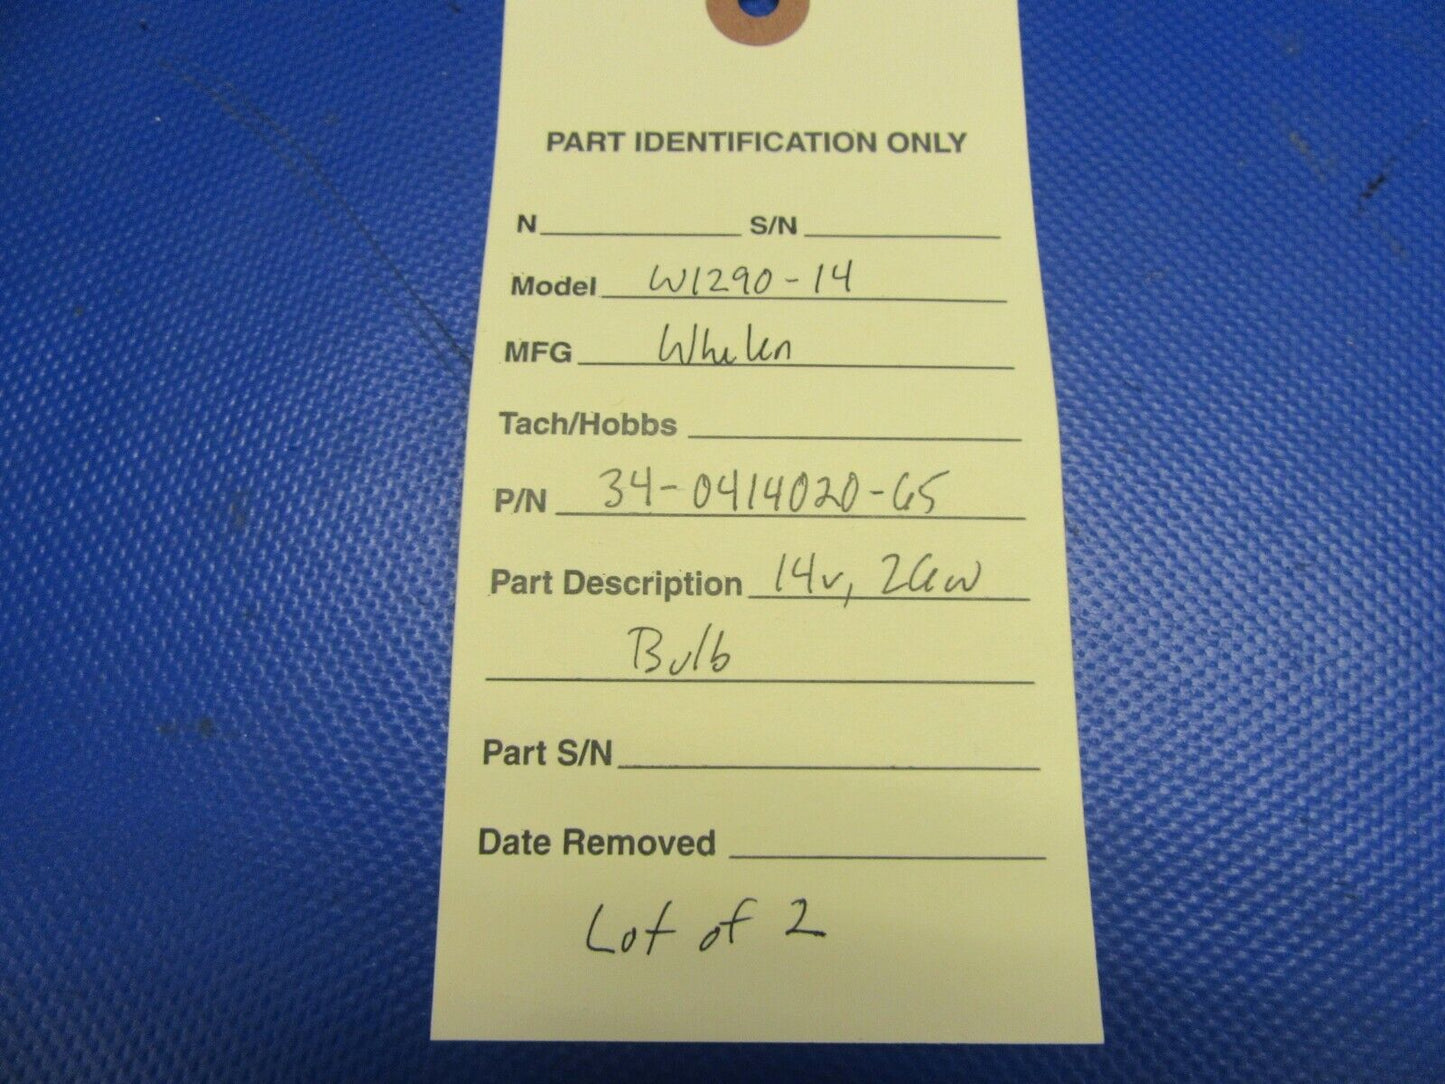 PART IDENTIFICATION ONLY
N S/N
Model W1290-14
MFG Whelen
Tach/Hobbs
P/N 34-0414020-65
Part Description 14v, 26w
Bulb
Part S/N
Date Removed
Lot of 2